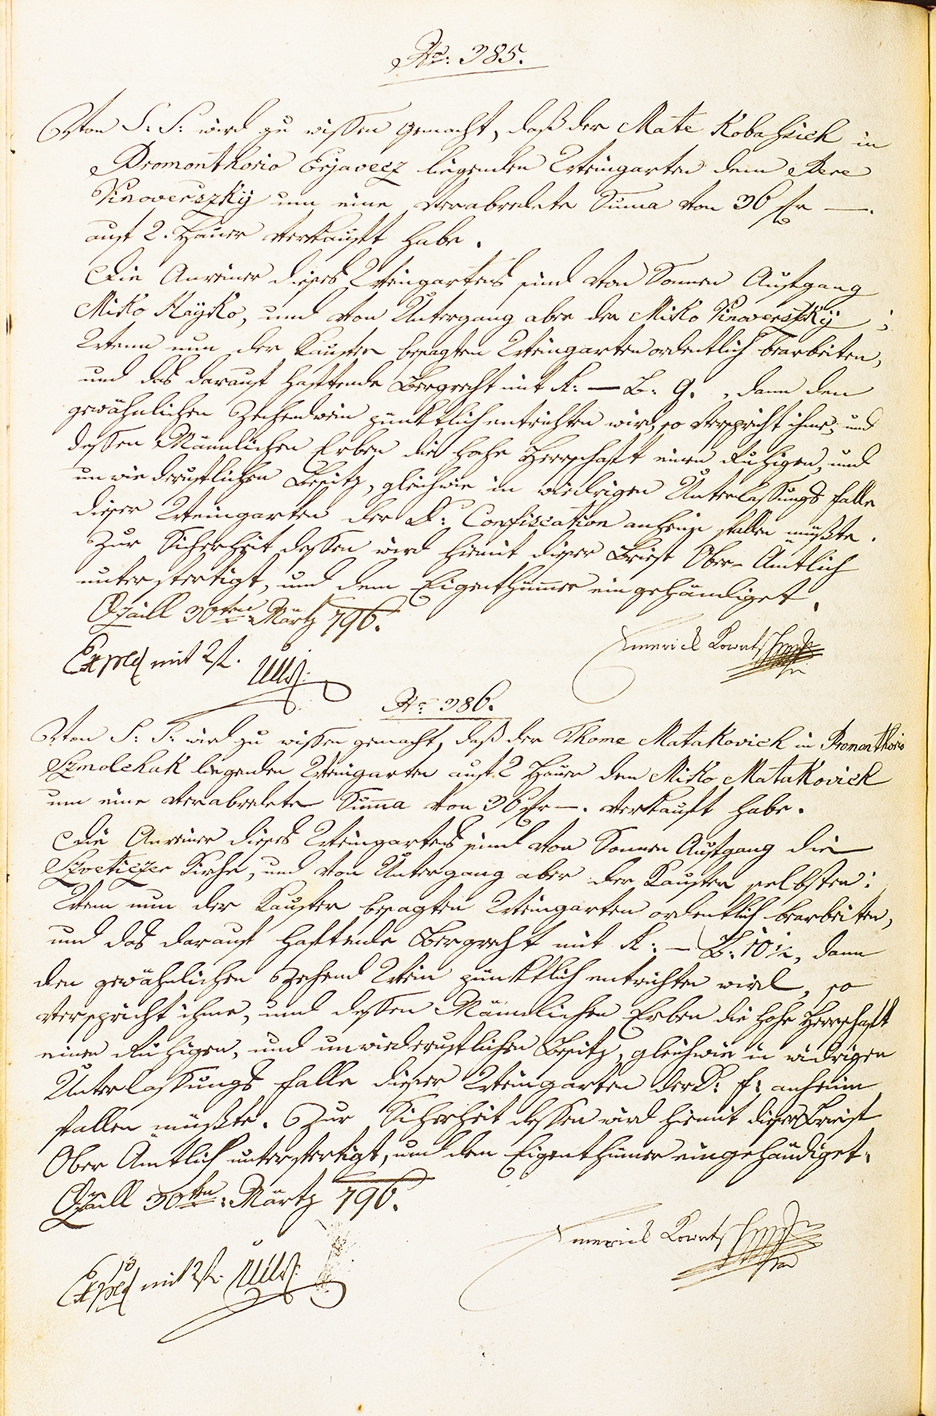 No: 385.
Von S: T: wird zu wissen gemacht, daß der Mate Kobassich in
Promonthorio Erjavecz liegenden Weingarten dem Pere
Vinoverszky um eine verabredete Suma von 36 fr —.
auf 2. Hauer verkauft habe.
Die Anreiner dieses Weingartens sind von Sonnen Aufgang
Misko Haysko, und von Untergang aber der Misko Vinoverszky;
Wenn nun der Kaufer besagten Weingarten ordentlich bearbeiten,
und das darauf haftende Bergrecht mit K: — D: 9., dann den
gewöhnlichen Zehendwein pünktlich entrichten wird, so verspricht ihme, und
dessen Männlichen Erben die hohe Herrschaft einen Ruhigen, und
unwiederruflichen Besitz, gleichwie in wiedrigen Unterlassungs falle
dieser Weingarten der Confiscation anheim fallen müßte.
Zur Sicherheit dessen wird hiemit dieser Brief Ober-Amtlich
unterfertigt, und dem Eigenthümmer eingehändiget.
Ozaill 30ten Märtz 796.
Emerich
Exped mit 2f.
No 386.
Von S: T: wird zu wissen gemacht, daß der Thome Matakovich in Promonthorio
Szmolchak liegenden Weingarten auf 2 Hauer dem Misko Matakovich
um eine verabredete Summa von 36 fr —. verkauft habe.
Die Anreiner dieses Weingartens sind von Sonnen Aufgang die
Szveticzer Kirche, und von Untergang aber der Kaufer selbsten:
Wenn nun der Kaufer besagten Weingarten ordentlich bearbeiten,
und das darauf haftende Bergrecht mit K: — D: 10½, dann
den gewöhnlichen Zehend Wein pünktlich entrichten wird, so
verspricht ihme, und dessen Männlichen Erben die hohe Herrschaft
einen Ruhigen, und unwiederruflichen Besitz, gleichwie in widrigen
Unterlassungs falle dieser Weingarten der anheim
fallen müßte. Zur Sicherheit dessen wird hiemit dieser Brief
Ober Amtlich unterfertigt, und dem Eigenthümer eingehändiget.
Ozaill 30ten Märtz 796.
Emerich
Exped mit 2f.